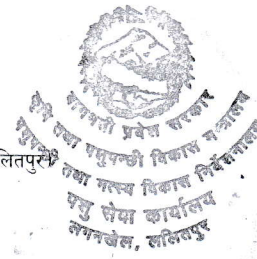 बागमती प्रदेश सरकार
कृषि तथा पशुपन्छी विकास मन्त्रालय
तथा मत्स्य विकास निर्देशनालय
पशु सेवा कार्यालय
लगनखेल, ललितपुर
लितपुर